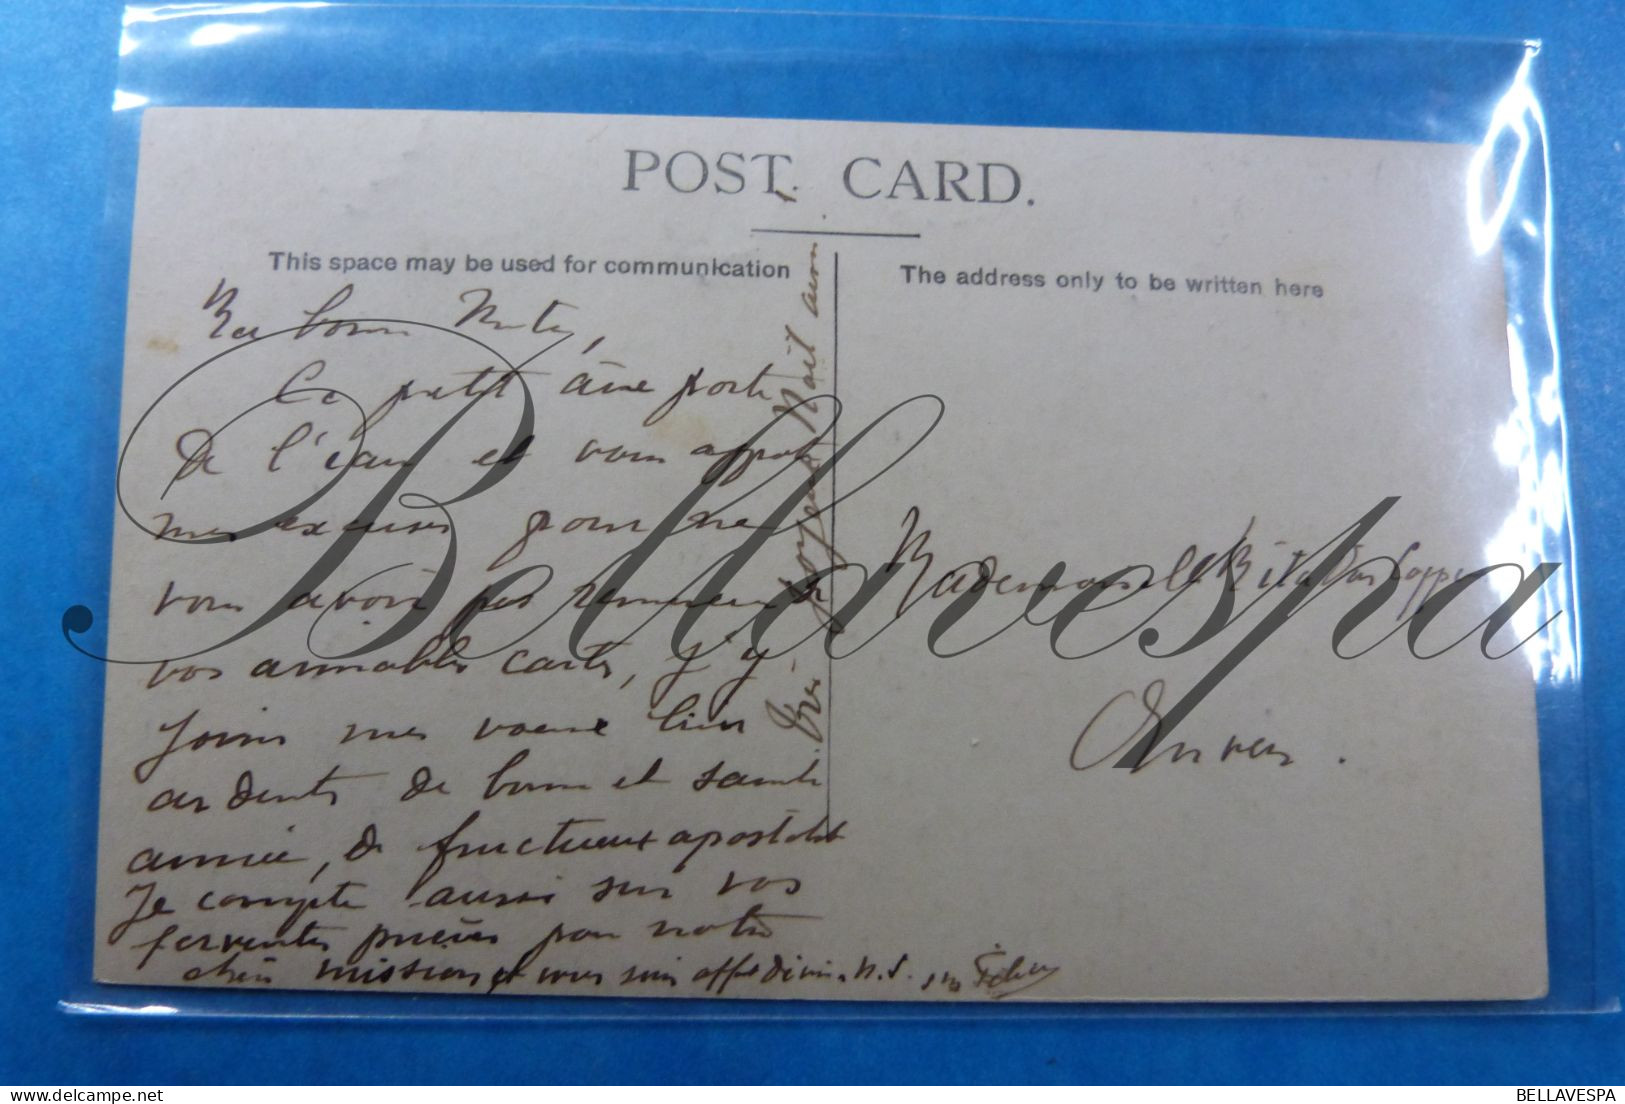 POST CARD.
This space may be used for communication
The address only to be written here
Ma bonne
Ce petit âne porte
de l'eau et vous apporte
mes excuses pour ne
vous avoir pas remercié
vos aimables cartes, j'y
joins mes voeux bien
ardents de bonne et sainte
année, de fructueux apostolat
Je compte aussi sur vos
ferventes prières pour notre
chère mission et vous suis affet. N.S.
Mademoiselle
Anvers.
Bellavespa
BELLAVESPA